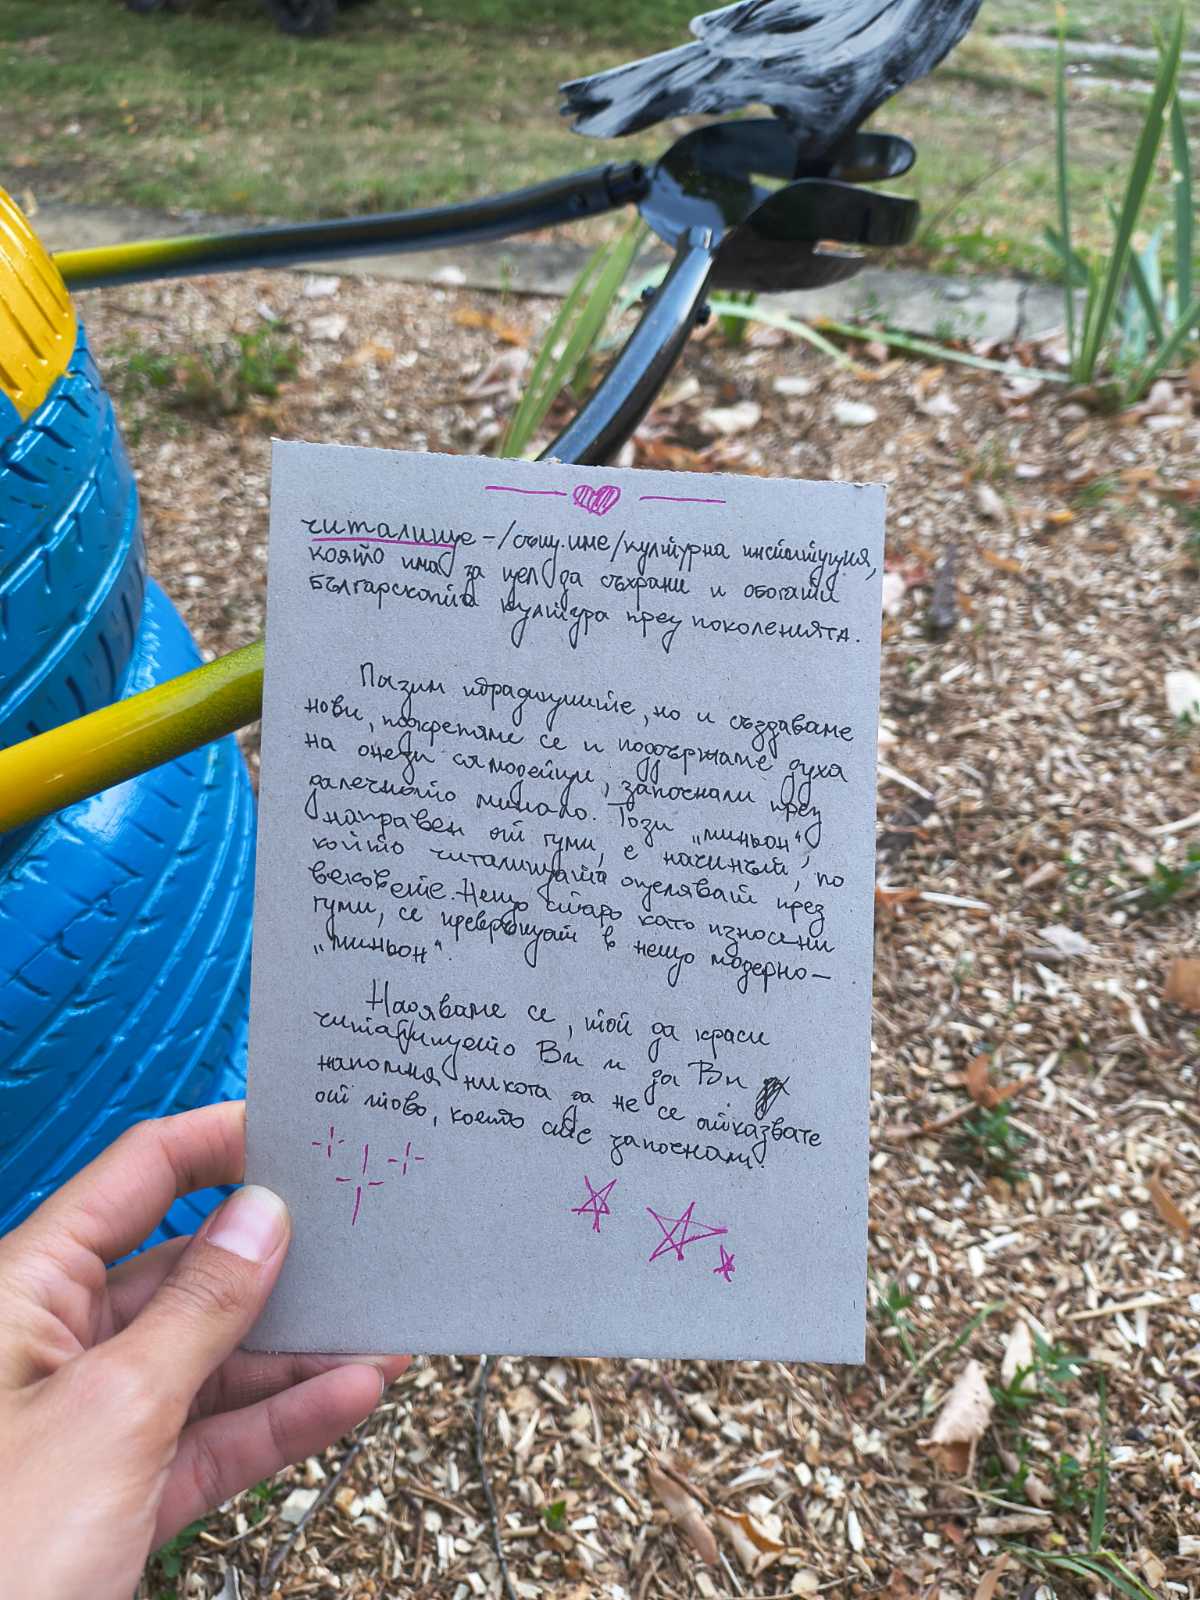 читалище - /същ. име/ културна институция,
която има за цел да съхрани и обогати
българската култура през поколенията.
Пазим традициите, но и създаваме
нови, подкрепяме се и поддържаме духа
на онези самодейци, започнали през
далечното минало. Този „миньон“,
направен от гуми, е начинът, по
който читалищата оцеляват през
вековете. Нещо старо като износени
гуми, се превръщат в нещо модерно –
„миньон“.
Надяваме се, той да краси
читалището Ви и да Ви
напомня никога да не се отказвате
от това, което сте започнали.